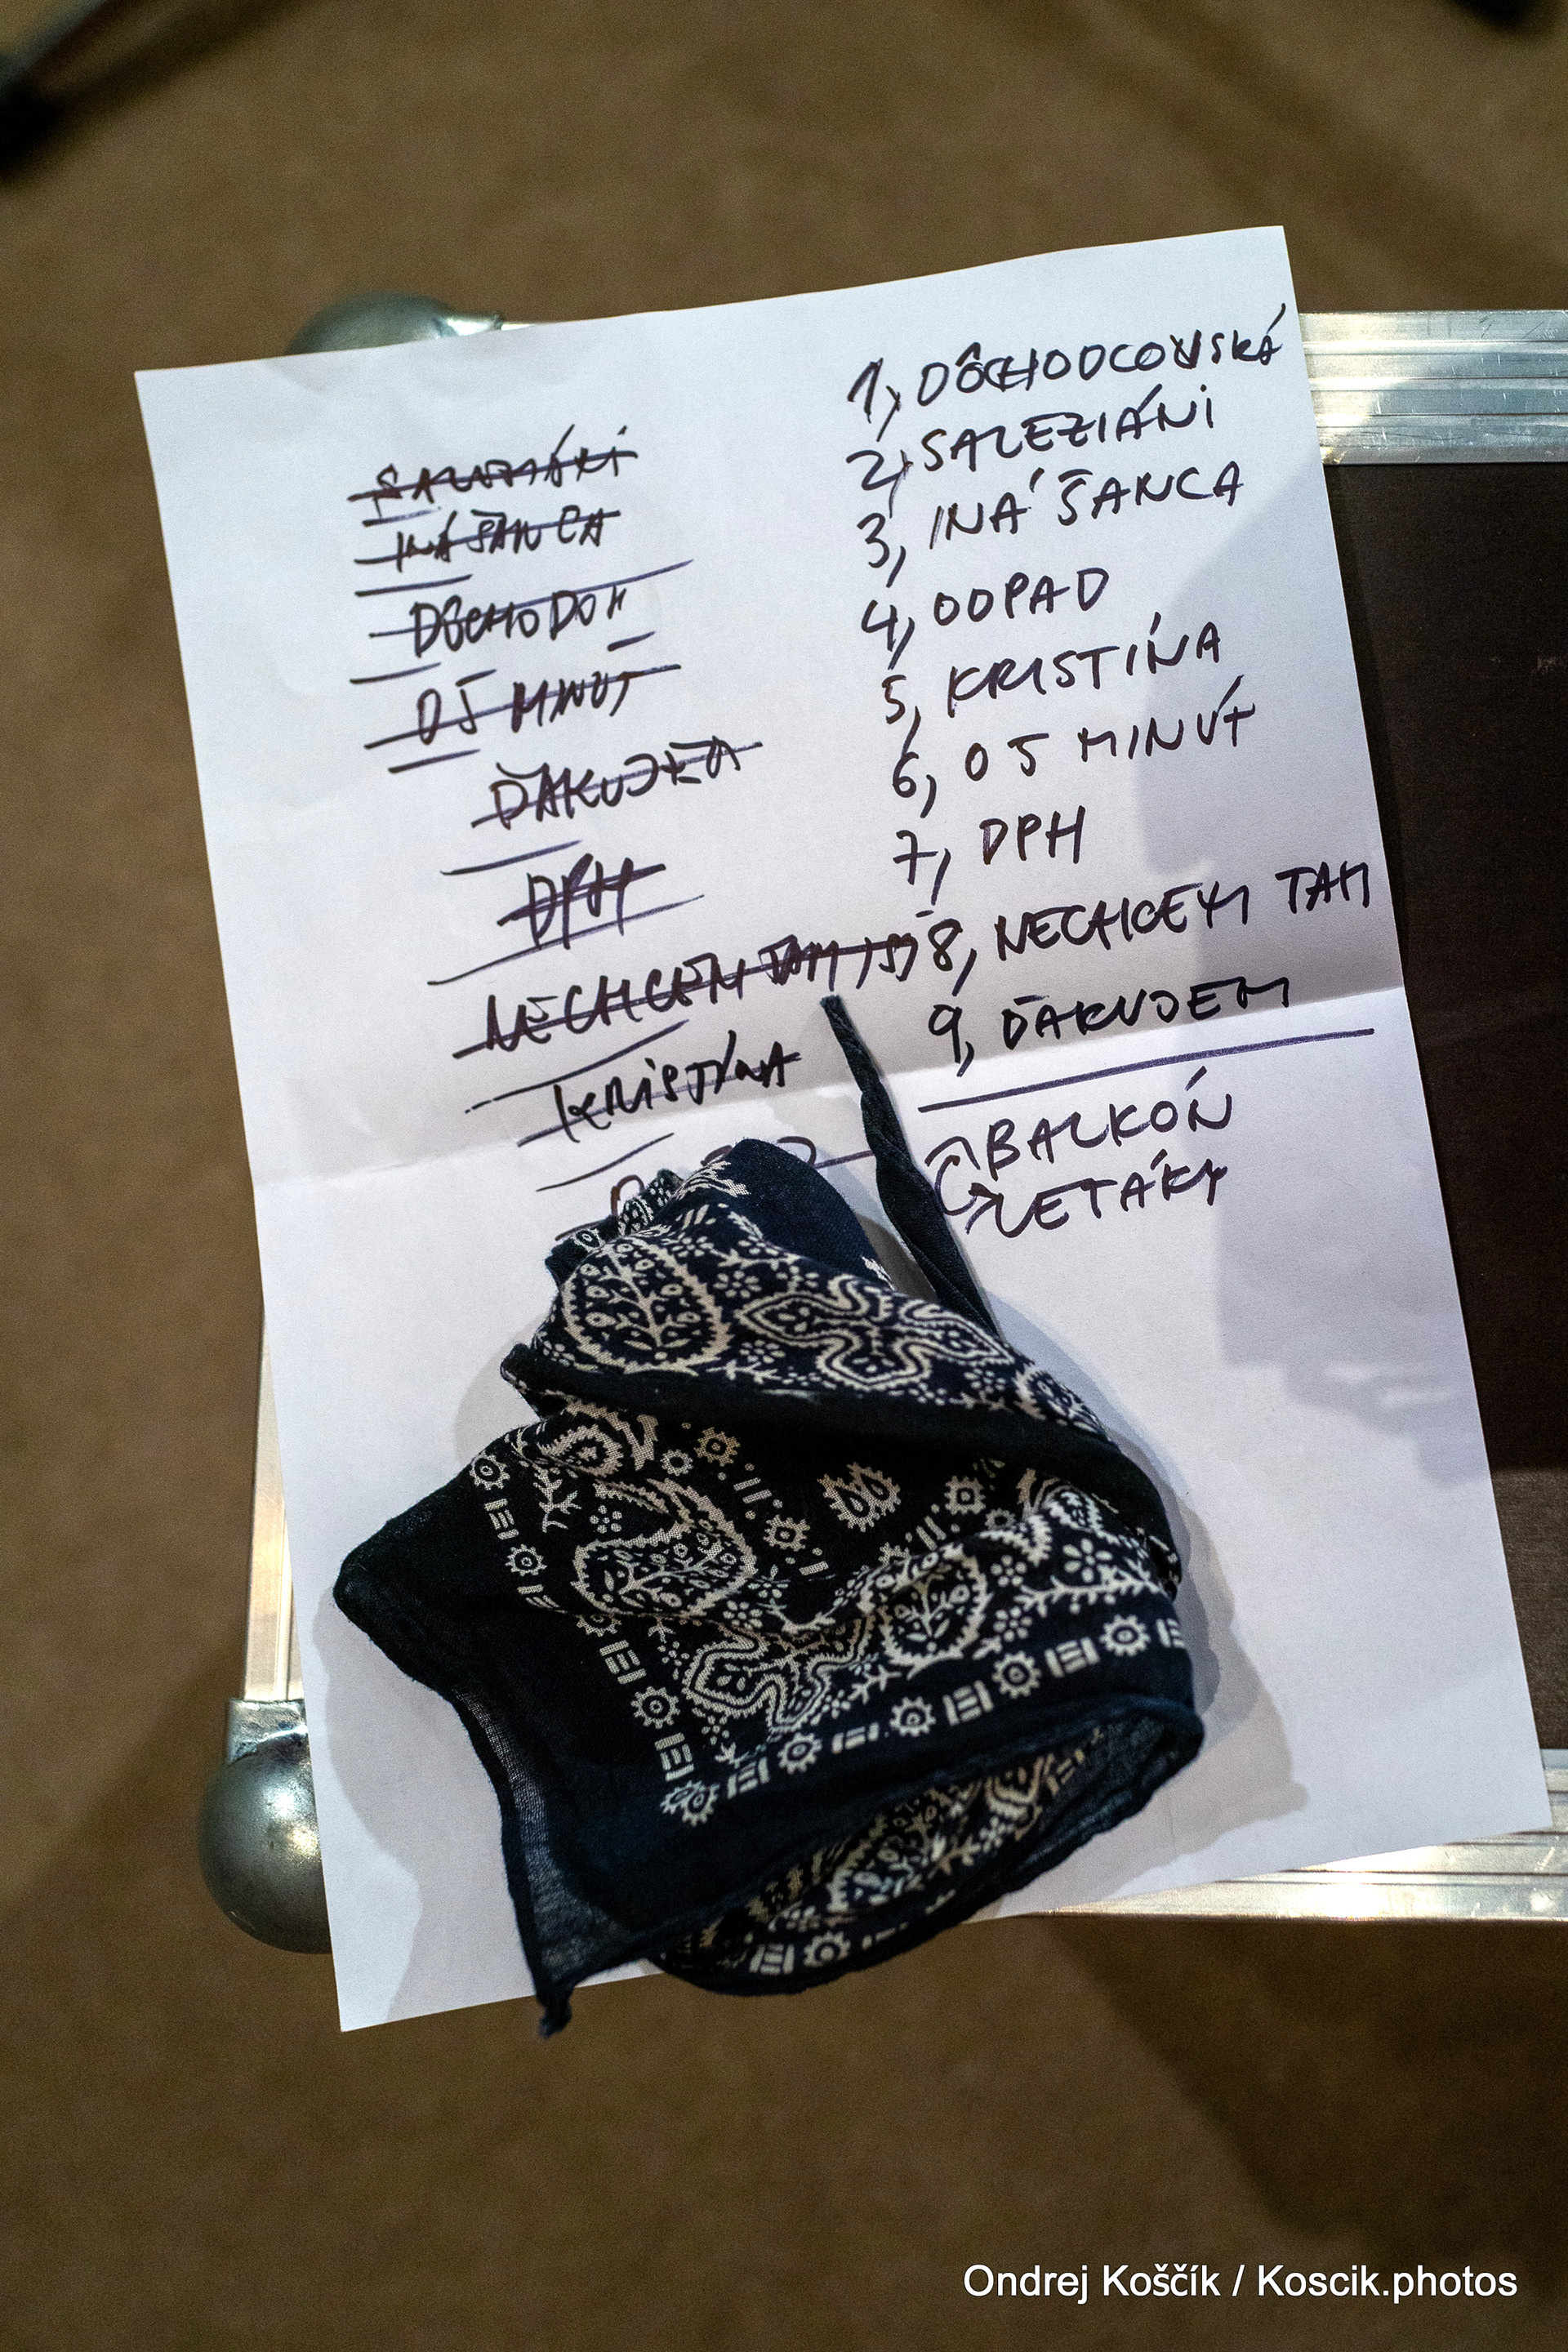 INÁ ŠANCA
DÔCHODOK
O 5 MINÚT
ĎAKUJEM
DPH
NECHCEM TAM ÍSŤ
KRISTÍNA
1, DÔCHODCOVSKÁ
2, SALEZIÁNI
3, INÁ ŠANCA
4, ODPAD
5, KRISTÍNA
6, O 5 MINÚT
7, DPH
8, NECHCEM TAM
9, ĎAKUJEM
BALKÓN
LETÁKY
Ondrej Koščík / Koscik.photos